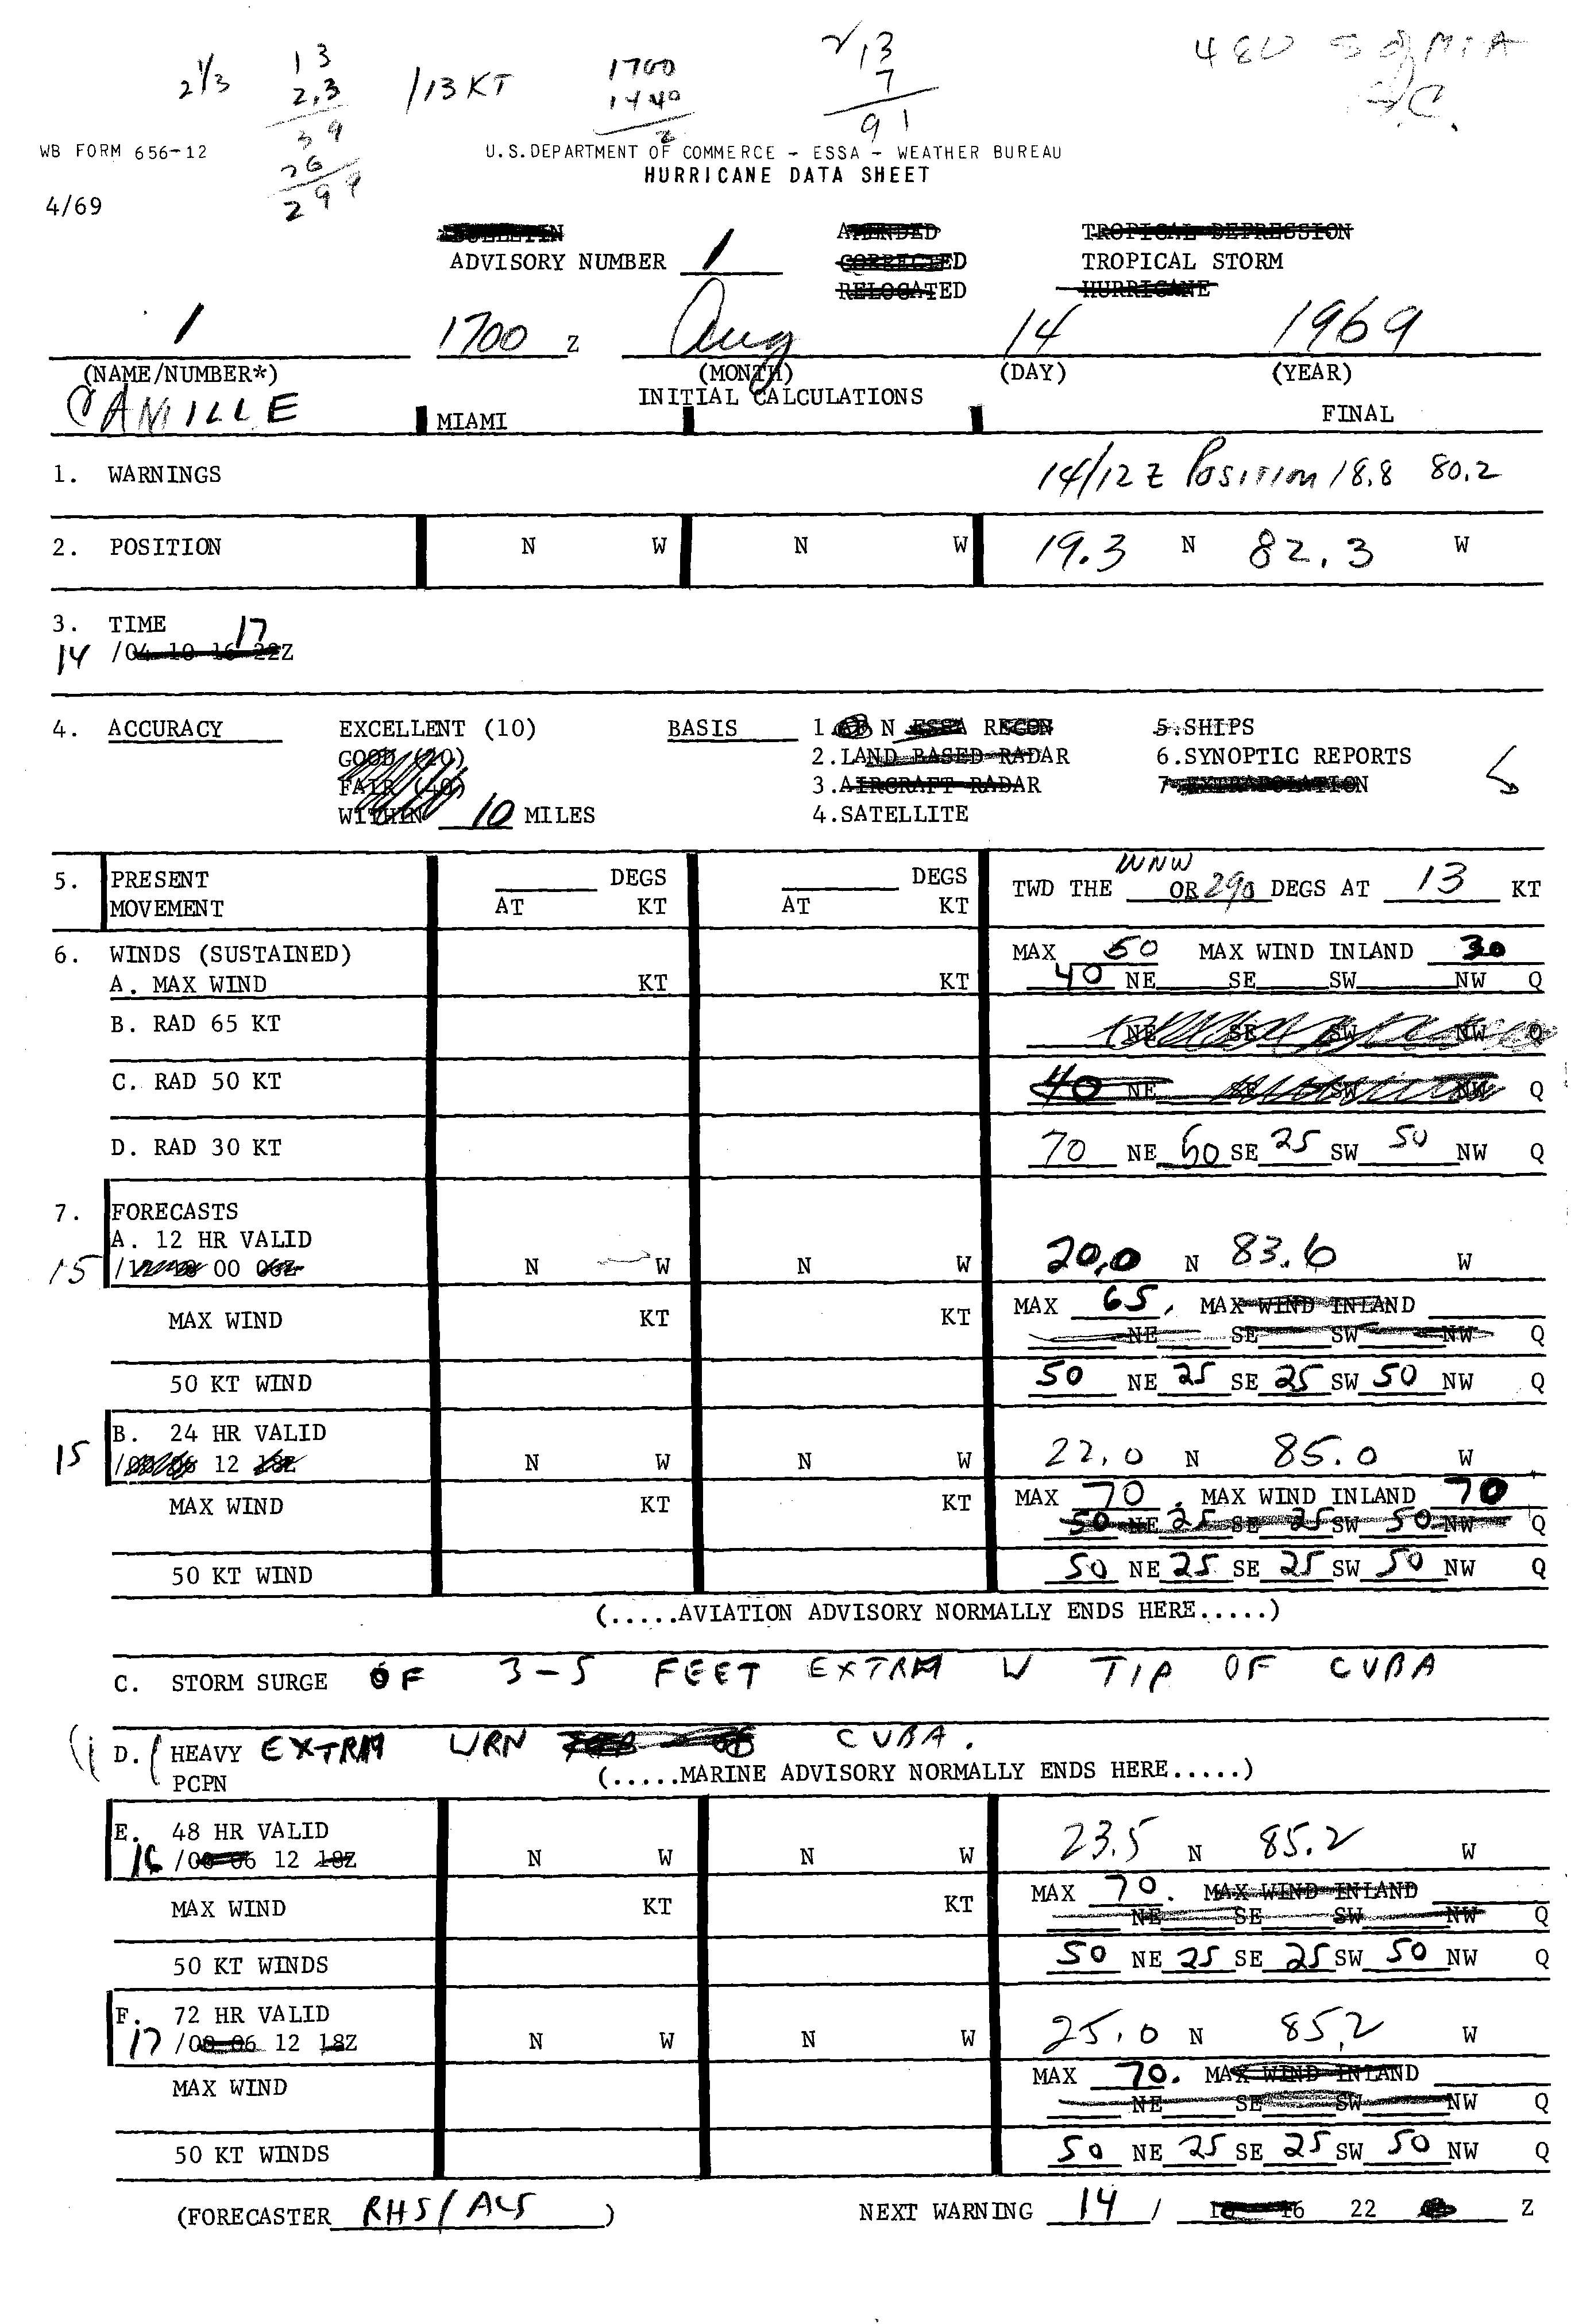 2 1/3 13 /13 KT 1700 √13 480 SqMiA
2,3 1440 7
39 2 91
26
299
WB FORM 656-12 U.S.DEPARTMENT OF COMMERCE - ESSA - WEATHER BUREAU
HURRICANE DATA SHEET
4/69
BULLETIN AMENDED TROPICAL DEPRESSION
ADVISORY NUMBER 1 CORRECTED TROPICAL STORM
RELOCATED HURRICANE
1 1700 Z Aug 14 1969
(NAME/NUMBER*) (MONTH) (DAY) (YEAR)
CAMILLE INITIAL CALCULATIONS
MIAMI FINAL
1. WARNINGS 14/12 Z Position 18.8 80.2
2. POSITION N W N W 19.3 N 82.3 W
3. TIME 17
14 /04 10 16 22Z
4. ACCURACY EXCELLENT (10) BASIS 1. N ESSA RECON 5.SHIPS
GOOD (20) 2.LAND BASED RADAR 6.SYNOPTIC REPORTS
FAIR (40) 3.AIRCRAFT RADAR 7.EXTRAPOLATION
WITHIN 10 MILES 4.SATELLITE
5. PRESENT DEGS DEGS TWD THE WNW OR 290 DEGS AT 13 KT
MOVEMENT AT KT AT KT
6. WINDS (SUSTAINED) MAX 50 MAX WIND INLAND 30
A. MAX WIND KT KT 40 NE SE SW NW Q
B. RAD 65 KT NE SE SW NW Q
C. RAD 50 KT 40 NE SE SW NW Q
D. RAD 30 KT 70 NE 60 SE 25 SW 50 NW Q
7. FORECASTS
A. 12 HR VALID
15 /12 18 00 06Z N W N W 20.0 N 83.6 W
MAX WIND KT KT MAX 65. MAX WIND INLAND
NE SE SW NW Q
50 KT WIND 50 NE 25 SE 25 SW 50 NW Q
B. 24 HR VALID
15 /00 06 12 18Z N W N W 22.0 N 85.0 W
MAX WIND KT KT MAX 70. MAX WIND INLAND 70
50 NE 25 SE 25 SW 50 NW Q
50 KT WIND 50 NE 25 SE 25 SW 50 NW Q
(.....AVIATION ADVISORY NORMALLY ENDS HERE.....)
C. STORM SURGE OF 3-5 FEET EXTRM W TIP OF CUBA
D. HEAVY EXTRM WRN CUBA.
PCPN (.....MARINE ADVISORY NORMALLY ENDS HERE.....)
E. 48 HR VALID
16 /00 06 12 18Z N W N W 23.5 N 85.2 W
MAX WIND KT KT MAX 70. MAX WIND INLAND
NE SE SW NW Q
50 KT WINDS 50 NE 25 SE 25 SW 50 NW Q
F. 72 HR VALID
17 /00 06 12 18Z N W N W 25.0 N 85.2 W
MAX WIND MAX 70. MAX WIND INLAND
NE SE SW NW Q
50 KT WINDS 50 NE 25 SE 25 SW 50 NW Q
(FORECASTER RHS/ALS ) NEXT WARNING 14 / 10 16 22 Z